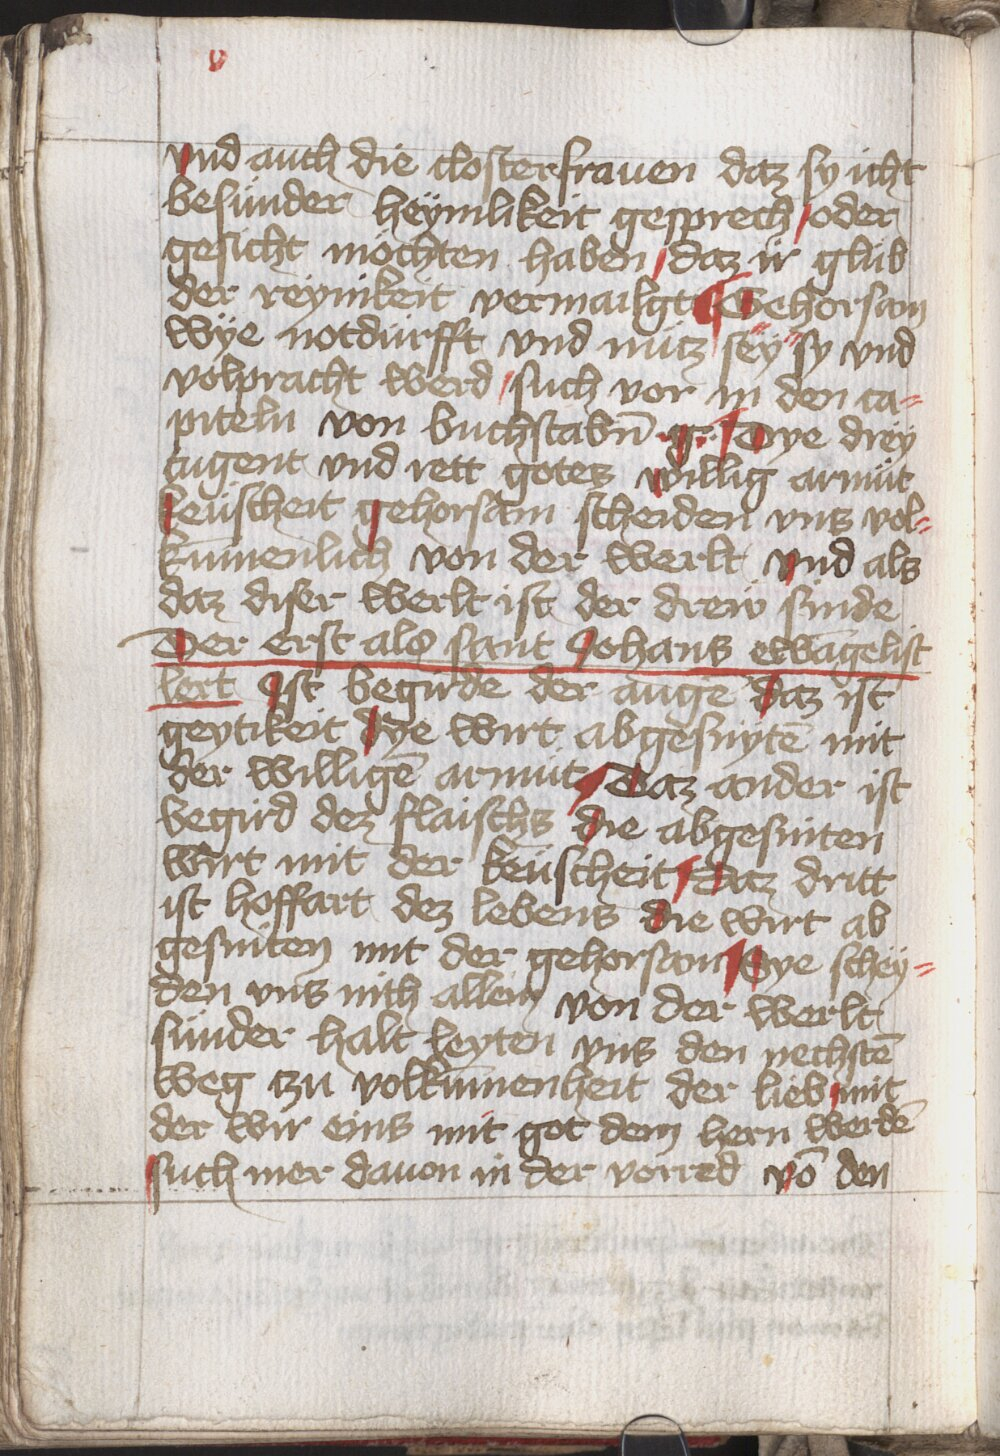 v
vnd auch die closterfrauen daz sy icht
besunder heymlikeit gesprech oder
gesicht möchten haben daz ir glüb
der reynikeit vermailgt Gehorsam
wye notdurfft vnd nutz sey sy vnd
volpracht werd such vor in den ca-
piteln von buchstabn̄ .g. Dye drey
tugent vnd rett gotes willig armut
keuscheit gehorsam scheiden vns vol-
kūmenlich von der werlt vnd als
daz diser werlt ist der dreir sunde
Der erst als sant Johans ewāgelist
lert Ist begirde der auge Daz ist
geytikeit dye wirt abgesnytē mit
der willigē armut Daz ander ist
begird dez flaischs die abgesniten
wirt mit der keuscheit Daz dritt
ist hoffart dez lebens die wirt ab
gesniten mit der gehorsam Dye schey-
den vns nith allein von der werlt
sunder halt leyten vns den nechstē
weg czu volkūmenheit der lieb mit
der wir eins mit got dem hern werdē
such mer dauon in der vorred vō den